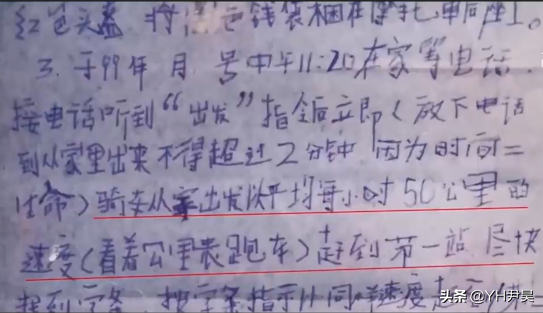 红色头盔 将 色钱袋捆在摩托車后座上。
3. 于99年 月 号中午11:20在家等电话.
接电话听到“出发”指令后立即(放下电话
到从家里出来不得超过2分钟 因为时间=
生命)骑车从家出发以平均每小时50公里的
速度(看着公里表跑车)赶到第一站 尽快
找到字条. 按字条指示以同样速度赶
头条@YH尹昊